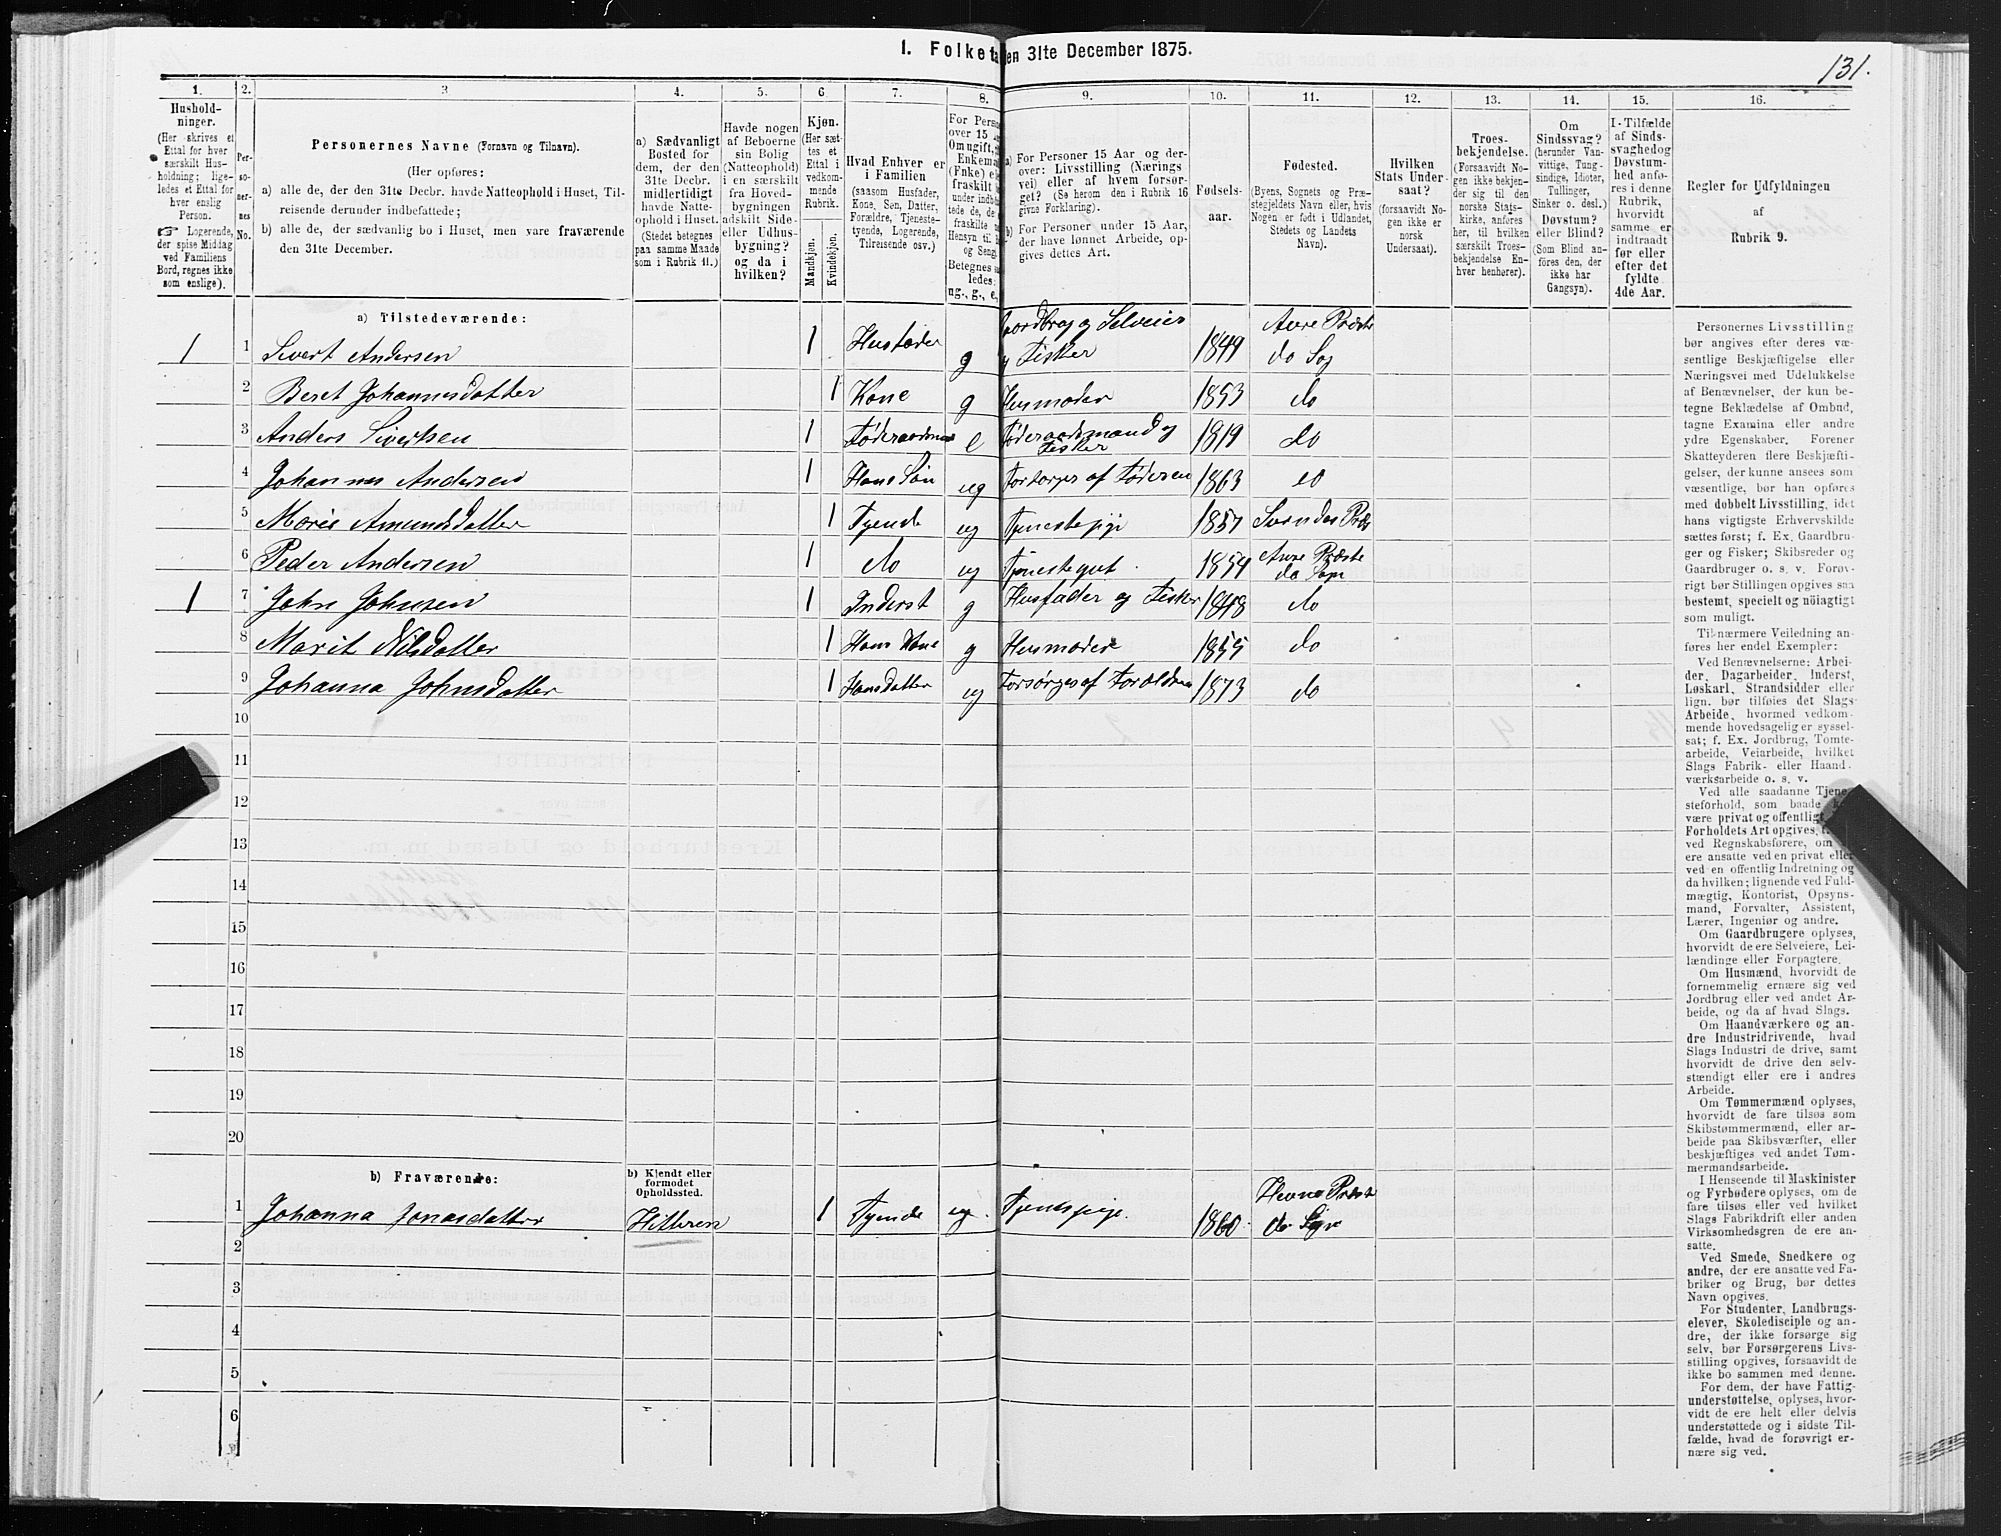 1. Folketa
den 31te December 1875.
131.
1.
2.
3.
4.
5.
6.
7.
8.
9.
10.
11.
12.
13.
14.
15.
16.
Hushold-
ninger.
(Her skrives et
Ettal for hver
særskilt Hus-
holdning; lige-
ledes et Ettal for
hver enslig
Person.
☞ Logerende,
der spise Middag
ved Familiens
Bord, regnes ikke
som enslige).
Per-
so-
ner-
nes
No.
Personernes Navne (Fornavn og Tilnavn).
(Her opføres:
a) alle de, der den 31te Decbr. havde Natteophold i Huset, Til-
reisende derunder indbefattede;
b) alle de, der sædvanlig bo i Huset, men vare fraværende
den 31te December.
a) Sædvanligt
Bosted for
dem, der den
31te Decbr.
midlertidigt
havde Natte-
ophold i Huset.
(Stedet betegnes
paa samme Maade
som i Rubrik 11.)
Havde nogen
af Beboerne
sin Bolig
(Natteophold)
i en særskilt
fra Hoved-
bygningen
adskilt Side-
eller Udhus-
bygning?
og da i
hvilken?
Kjøn.
(Her sæt-
tes et
Ettal i
vedkom-
mende
Rubrik.
Mandkjøn.
Kvindekjøn.
Hvad Enhver er
i Familien
(saasom Husfader,
Kone, Søn, Datter,
Forældre, Tjeneste-
tyende, Logerende,
Tilreisende osv.)
For Perso
over 15
Om ugift,
Enkema
(Fnke) e
fraskilt
under indb
tede de, d
fraskilte
Hensyn til
og Seng
Betegnes
ledes:
ug., g., e,
a) For Personer 15 Aar og der-
over: Livsstilling (Nærings
vei) eller af hvem forsør-
get? (Se herom den i Rubrik 16
givne Forklaring).
b) For Personer under 15 Aar,
der have lønnet Arbeide, op-
gives dettes Art.
Fødsels-
aar.
Fødested.
(Byens, Sognets og Præ-
stegjeldets Navn eller, hvis
Nogen er født i Udlandet,
Stedets og Landets
Navn).
Hvilken
Stats Under-
saat?
(forsaavidt No-
gen ikke er
norsk
Undersaat).
Troes-
bekjendelse.
(Forsaavidt No-
gen ikke bekjen-
der sig til den
norske Stats-
kirke, anføres
her, til hvilken
særskilt Troes-
bekjendelse En-
hver henhører).
Om
Sindssvag?
(herunder Van-
vittige, Tung-
sindige, Idioter,
Tullinger,
Sinker o. desl.)
Døvstum?
eller Blind?
(Som Blind an-
føres den, der
ikke har
Gangsyn).
I Tilfælde
af Sinds-
svaghed og
Døvstum-
hed anfø-
res i denne
Rubrik,
hvorvidt
samme er
indtraadt
før eller
efter det
fyldte
4de Aar.
Regler for Udfyldningen
af
Rubrik 9.
a) Tilstedeværende:
1 1 Sivert Andersen 1 Husfader g Gaardbrug og Selveier
og Fisker 1849 Aure Præste
do Sog
2 Beret Johannesdatter 1 Kone g Husmoder 1853 do
3 Anders Sivertsen 1 Føderaadsmand e Føderaadsmand og
Fisker 1819 do
4 Johannes Andersen 1 Hans Søn ug Forsørges af Føderen 1863 do
5 Marit Amundsdatter 1 Tyende ug Tjenestepige 1857 Surndas Præs
6 Peder Andersen 1 do ug Tjenestegut 1854 Aure Præste
do Sogn
1 7 John Johnsen 1 Inderst g Husfader og Fisker 1848 do
8 Marit Nilsdatter 1 Hans Kone g Husmoder 1855 do
9 Johanna Johnsdatter 1 Hans datter ug Forsørges af Foroldrene 1873 do
10
11
12
13
14
15
16
17
18
19
20
b) Fraværende:
b) Kjendt eller
formodet
Opholdssted.
1 Johanna Jonasdatter Hitteren 1 Tyende ug. Tjenestpige. 1860 Hevne Præst
do Sogn
2
3
4
5
6
Personernes Livsstilling
bør angives efter deres væ-
sentlige Beskjæftigelse eller
Næringsvei med Udelukkelse
af Benævnelser, der kun be-
tegne Beklædelse af Ombud,
tagne Examina eller andre
ydre Egenskaber. Forener
Skatteyderen flere Beskjæfti-
gelser, der kunne ansees som
væsentlige, bør han opføres
med dobbelt Livsstilling, idet
hans vigtigste Erhvervskilde
sættes først; f. Ex. Gaardbru-
ger og Fisker; Skibsreder og
Gaardbruger o. s. v. Forøv-
rigt bør Stillingen opgives saa
bestemt, specielt og nöiagtigt
som muligt.
Tilnærmere Veiledning an-
føres her endel Exempler:
Ved Benævnelserne: Arbei-
der, Dagarbeider, Inderst,
Løskarl, Strandsidder eller
lign. bør tilføies det Slags
Arbeide, hvormed vedkom-
mende hovedsagelig er syssel-
sat; f. Ex. Jordbrug, Tomte-
arbeide, Veiarbeide, hvilket
Slags Fabrik- eller Haand-
værksarbeide o. s. v.
Ved alle saadanne Tjene-
steforhold, som baade
være privat og offentligt,
Forholdets Art opgives,
ved Regnskabsførere, om
ere ansatte ved en privat eller
ved en offentlig Indretning og
da hvilken; lignende ved Fuld-
mægtig, Kontorist, Opsyns-
mand, Forvalter, Assistent,
Lærer, Ingeniør og andre.
Om Gaardbrugere oplyses,
hvorvidt de ere Selveiere, Lei-
lændinge eller Forpagtere.
Om Husmænd, hvorvidt de
fornemmelig ernære sig ved
Jordbrug eller ved andet Ar-
beide, og da af hvad Slags.
Om Haandværkere og an-
dre Industridrivende, hvad
Slags Industri de drive, samt
hvorvidt de drive den selv-
stændigt eller ere i andres
Arbeide.
Om Tømmermænd oplyses,
hvorvidt de fare tilsøs som
Skibstømmermænd, eller ar-
beide paa Skibsværfter, eller
beskjæftiges ved andet Tøm-
mermandsarbeide.
I Henseende til Maskinister
og Fyrbødere oplyses, om de
fare tilsøs eller ved hvilket
Slags Fabrikdrift eller anden
Virksomhedsgren de ere an-
satte.
Ved Smede, Snedkere og
andre, der ere ansatte ved Fa-
briker og Brug, bør dettes
Navn opgives.
For Studenter, Landbrugs-
elever, Skoledisciple og an-
dre, der ikke forsørge sig
selv, bør Forsørgerens Livs-
stilling opgives, forsaavidt de
ikke bo sammen med denne.
For dem, der have Fattig-
understøttelse, oplyses, hvor-
vidt de ere helt eller delvis
understøttede og i sidste Til-
fælde, hvad de forøvrigt er-
nære sig ved.